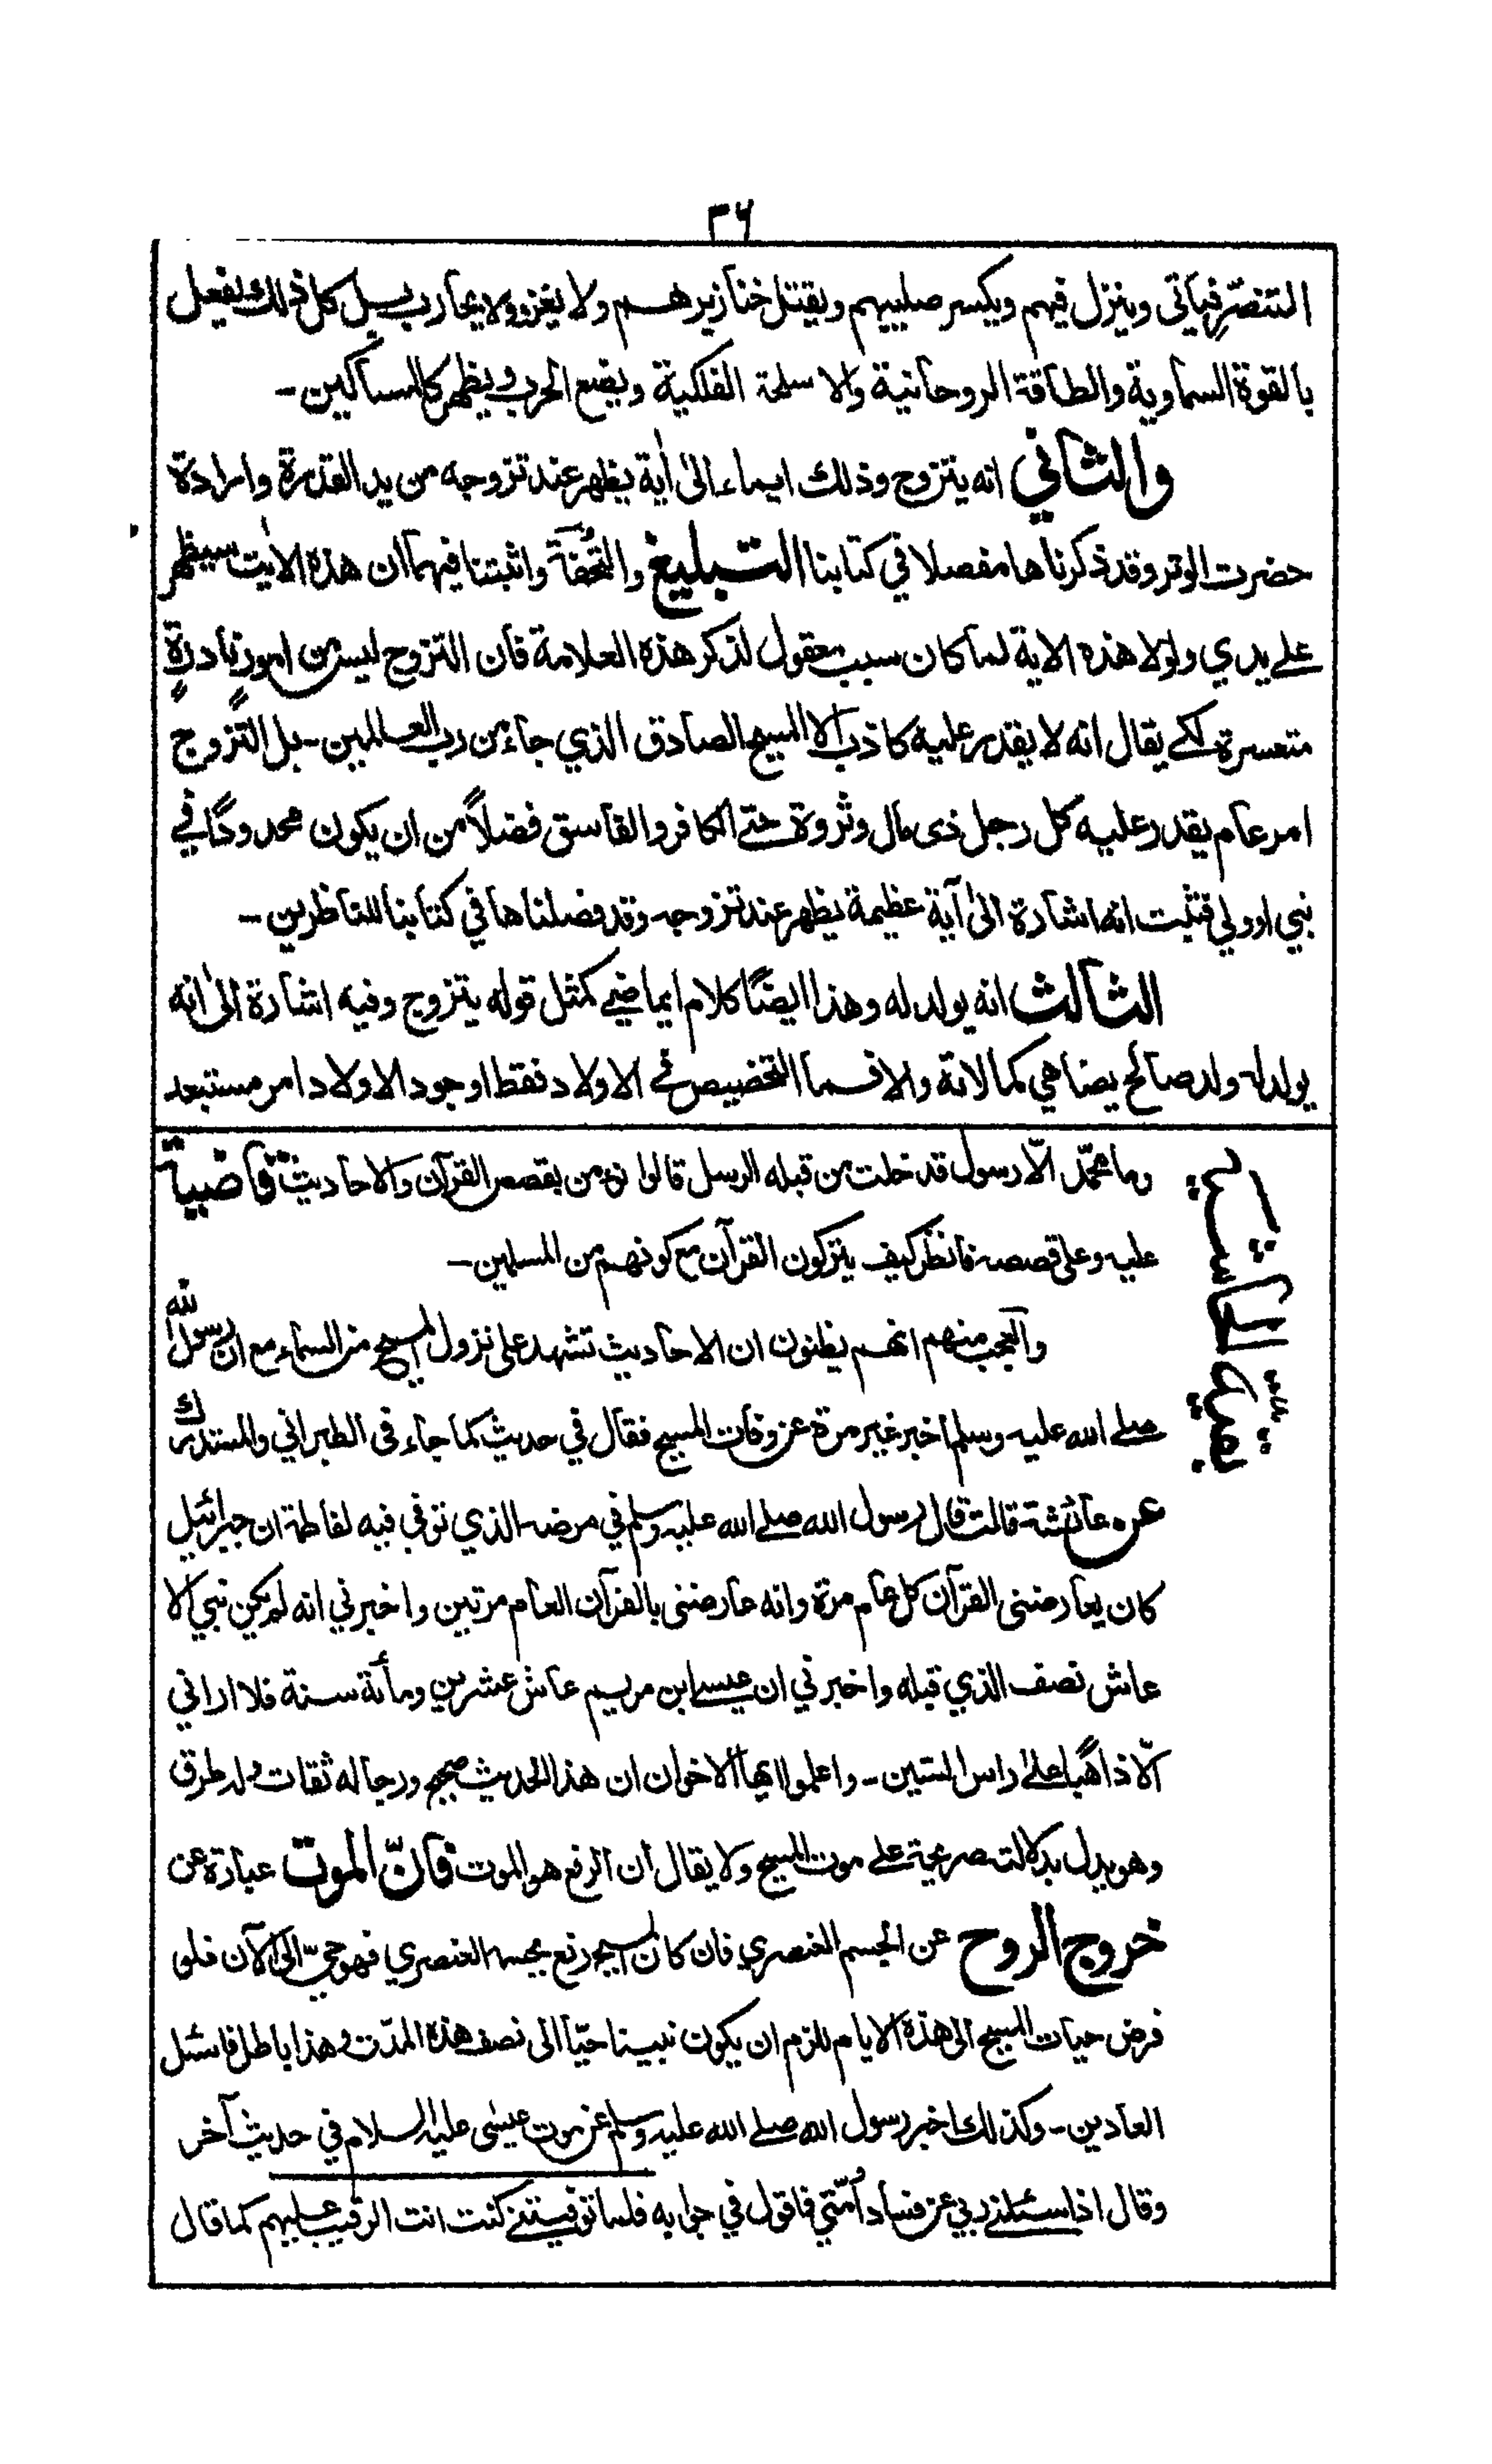 ٣٦
التنصّر فيأتى وينزل فيهم ويكسر صليبهم ويقتل خنازيرهم ولا يغزو ولا يحارب بل كل ذلك يفعل
بالقوة السماوية والطاقة الروحانية والاسلحة الفلكية ويضع الحرب ويظهر كالمساكين ـ
والثاني انه يتزوج وذلك ايماء الىٰ اٰية يظهر عند تزوجه من يد القدرة وارادة
حضرت الوتر وقد ذكرناها مفصلا في كتابنا التبليغ والتُّحفة واثبتنا فيهما ان هذه الاٰيت سيظهر
علے يدي ولولا هذه الاية لما كان سبب معقول لذكر هذه العلامة فان التزوج ليس من امورٍ نادرةٍ
متعسرةٍ لكے يقال انه لا يقدر عليه كاذب الا المسيح الصادق الذي جاء من رب العالمين ـ بل التَّزوج
امر عام يقدر عليه كل رجل ذى مال وثروة حتے الكافر والفاسق فضلاً من ان يكون محدودًا في
نبي او ولي فثبت انه اشارة الىٰ آية عظيمة يظهر عند تزوجه وقد فصلناها في كتابنا للناظرين ـ
الثالث انه يولد له وهذا ايضًا كلام ايماضي كمثل قوله يتزوج وفيه اشارة الىٰ انه
يولد له ولد صالح يضاهي كمالاته والا فما التخصيص في الاولاد فقط او وجود الاولاد امر مستبعد
وما محمّد الّا رسول قد خلت من قبله الرسل قالوا نؤمن بقصص القرآن والاحاديث قاضية
عليه وعلى قصصه فانظر كيف يتركون القرآن مع كونهم من المسلمين ـ
والعجب منهم انهم يظنون ان الاحاديث تشهد على نزول المسيح من السماء مع ان رسول الله
صلے الله عليه وسلم اخبر غير مرة عن وفات المسيح فقال في حديث كما جاء فى الطبراني والمستدرك
عن عائشة قالت قال رسول الله صلے الله عليه وسلم في مرضه الذي توفي فيه لفاطمة ان جبرائيل
كان يعارضنى القرآن كل عام مرة وانه عارضنى بالقرآن العام مرتين واخبرني انه لم يكن نبي الا
عاش نصف الذي قبله واخبرني ان عيسے ابن مريم عاش عشرين ومأئة سنة فلا اراني
الّا ذاهبًا علے راس الستين ـ واعلموا ايها الاخوان ان هذا الحديث صحيح ورجاله ثقات وله طرق
وهو يدل بدلالت صريحة علے موت المسيح ولا يقال ان الرفع هو الموت فانّ الموت عبارة عن
خروج الروح عن الجسم العنصري فان كان المسيح رفع بجسمه العنصري فهو حيّ الى الآن فلو
فرض حيات المسيح الى هذه الايام للزم ان يكون نبينا حيّا الى نصف هذه المدّت وهذا باطل فاسئل
العادين ـ وكذلك اخبر رسول الله صلے الله عليه وسلم عن موت عيسٰى عليه السلام في حديث آخر
وقال اذا سئلنے ربي عن فساد اُمّتي فاقول في جوابه فلما توفيتنے كنت انت الرقيب عليهم كما قال